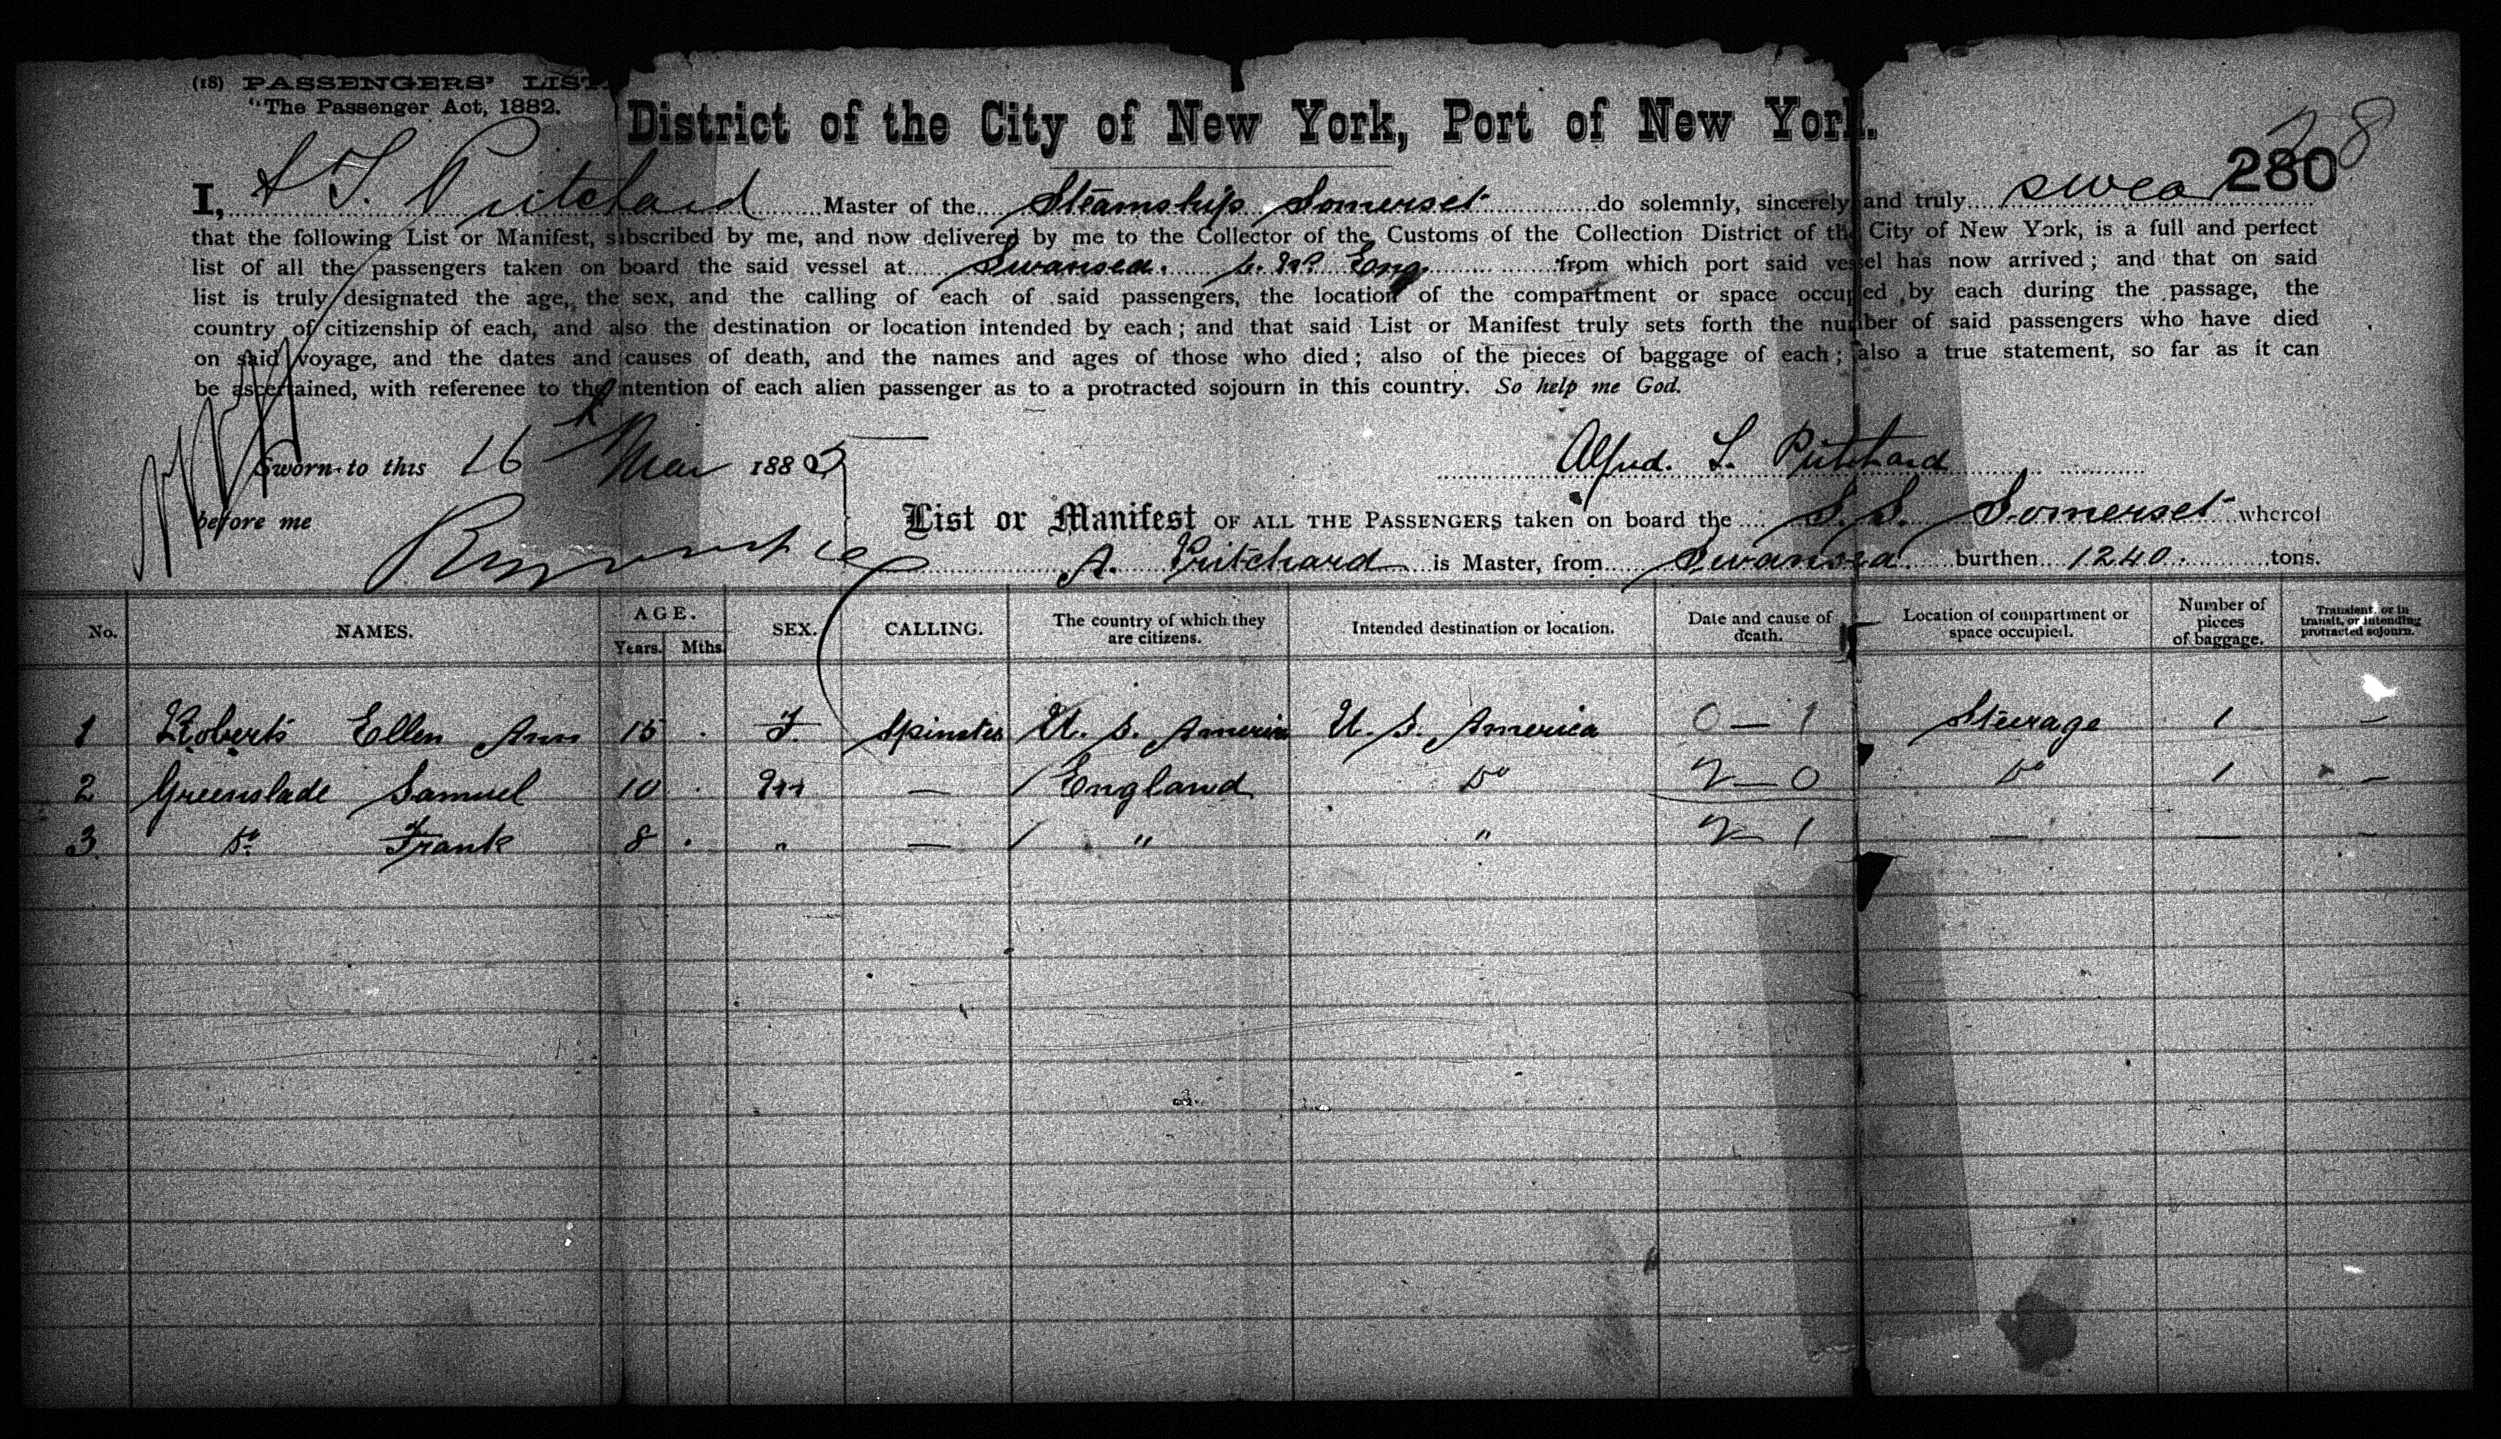 (18) PASSENGERS' LIST.
"The Passenger Act, 1882.
District of the City of New York, Port of New York.
28
280
I, A L Pritchard Master of the Steamship Somerset do solemnly, sincerely and truly swear
that the following List or Manifest, subscribed by me, and now delivered by me to the Collector of the Customs of the Collection District of the City of New York, is a full and perfect
list of all the passengers taken on board the said vessel at Swansea. Eng. from which port said vessel has now arrived; and that on said
list is truly designated the age, the sex, and the calling of each of said passengers, the location of the compartment or space occupied by each during the passage, the
country of citizenship of each, and also the destination or location intended by each; and that said List or Manifest truly sets forth the number of said passengers who have died
on said voyage, and the dates and causes of death, and the names and ages of those who died; also of the pieces of baggage of each; also a true statement, so far as it can
be ascertained, with reference to the intention of each alien passenger as to a protracted sojourn in this country. So help me God.
Sworn to this 16th Mar 1885 Alfred. L. Pritchard
before me
List or Manifest OF ALL THE PASSENGERS taken on board the S. S. Somerset whereof
A. Pritchard is Master, from Swansea burthen 1240. tons.
No. NAMES. AGE. Years. Mths. SEX. CALLING. The country of which they are citizens. Intended destination or location. Date and cause of death. Location of compartment or space occupied. Number of pieces of baggage. Transient, or in transit, or intending protracted sojourn.
1 Roberts Ellen Ann 15 . F. Spinster U. S. America U. S. America 0 — 1 Steerage 1 —
2 Greenslade Samuel 10 . M — / England Do 2 — 0 Do 1 —
3 Do Frank 8 . " — / " " 2 — 1 — — —